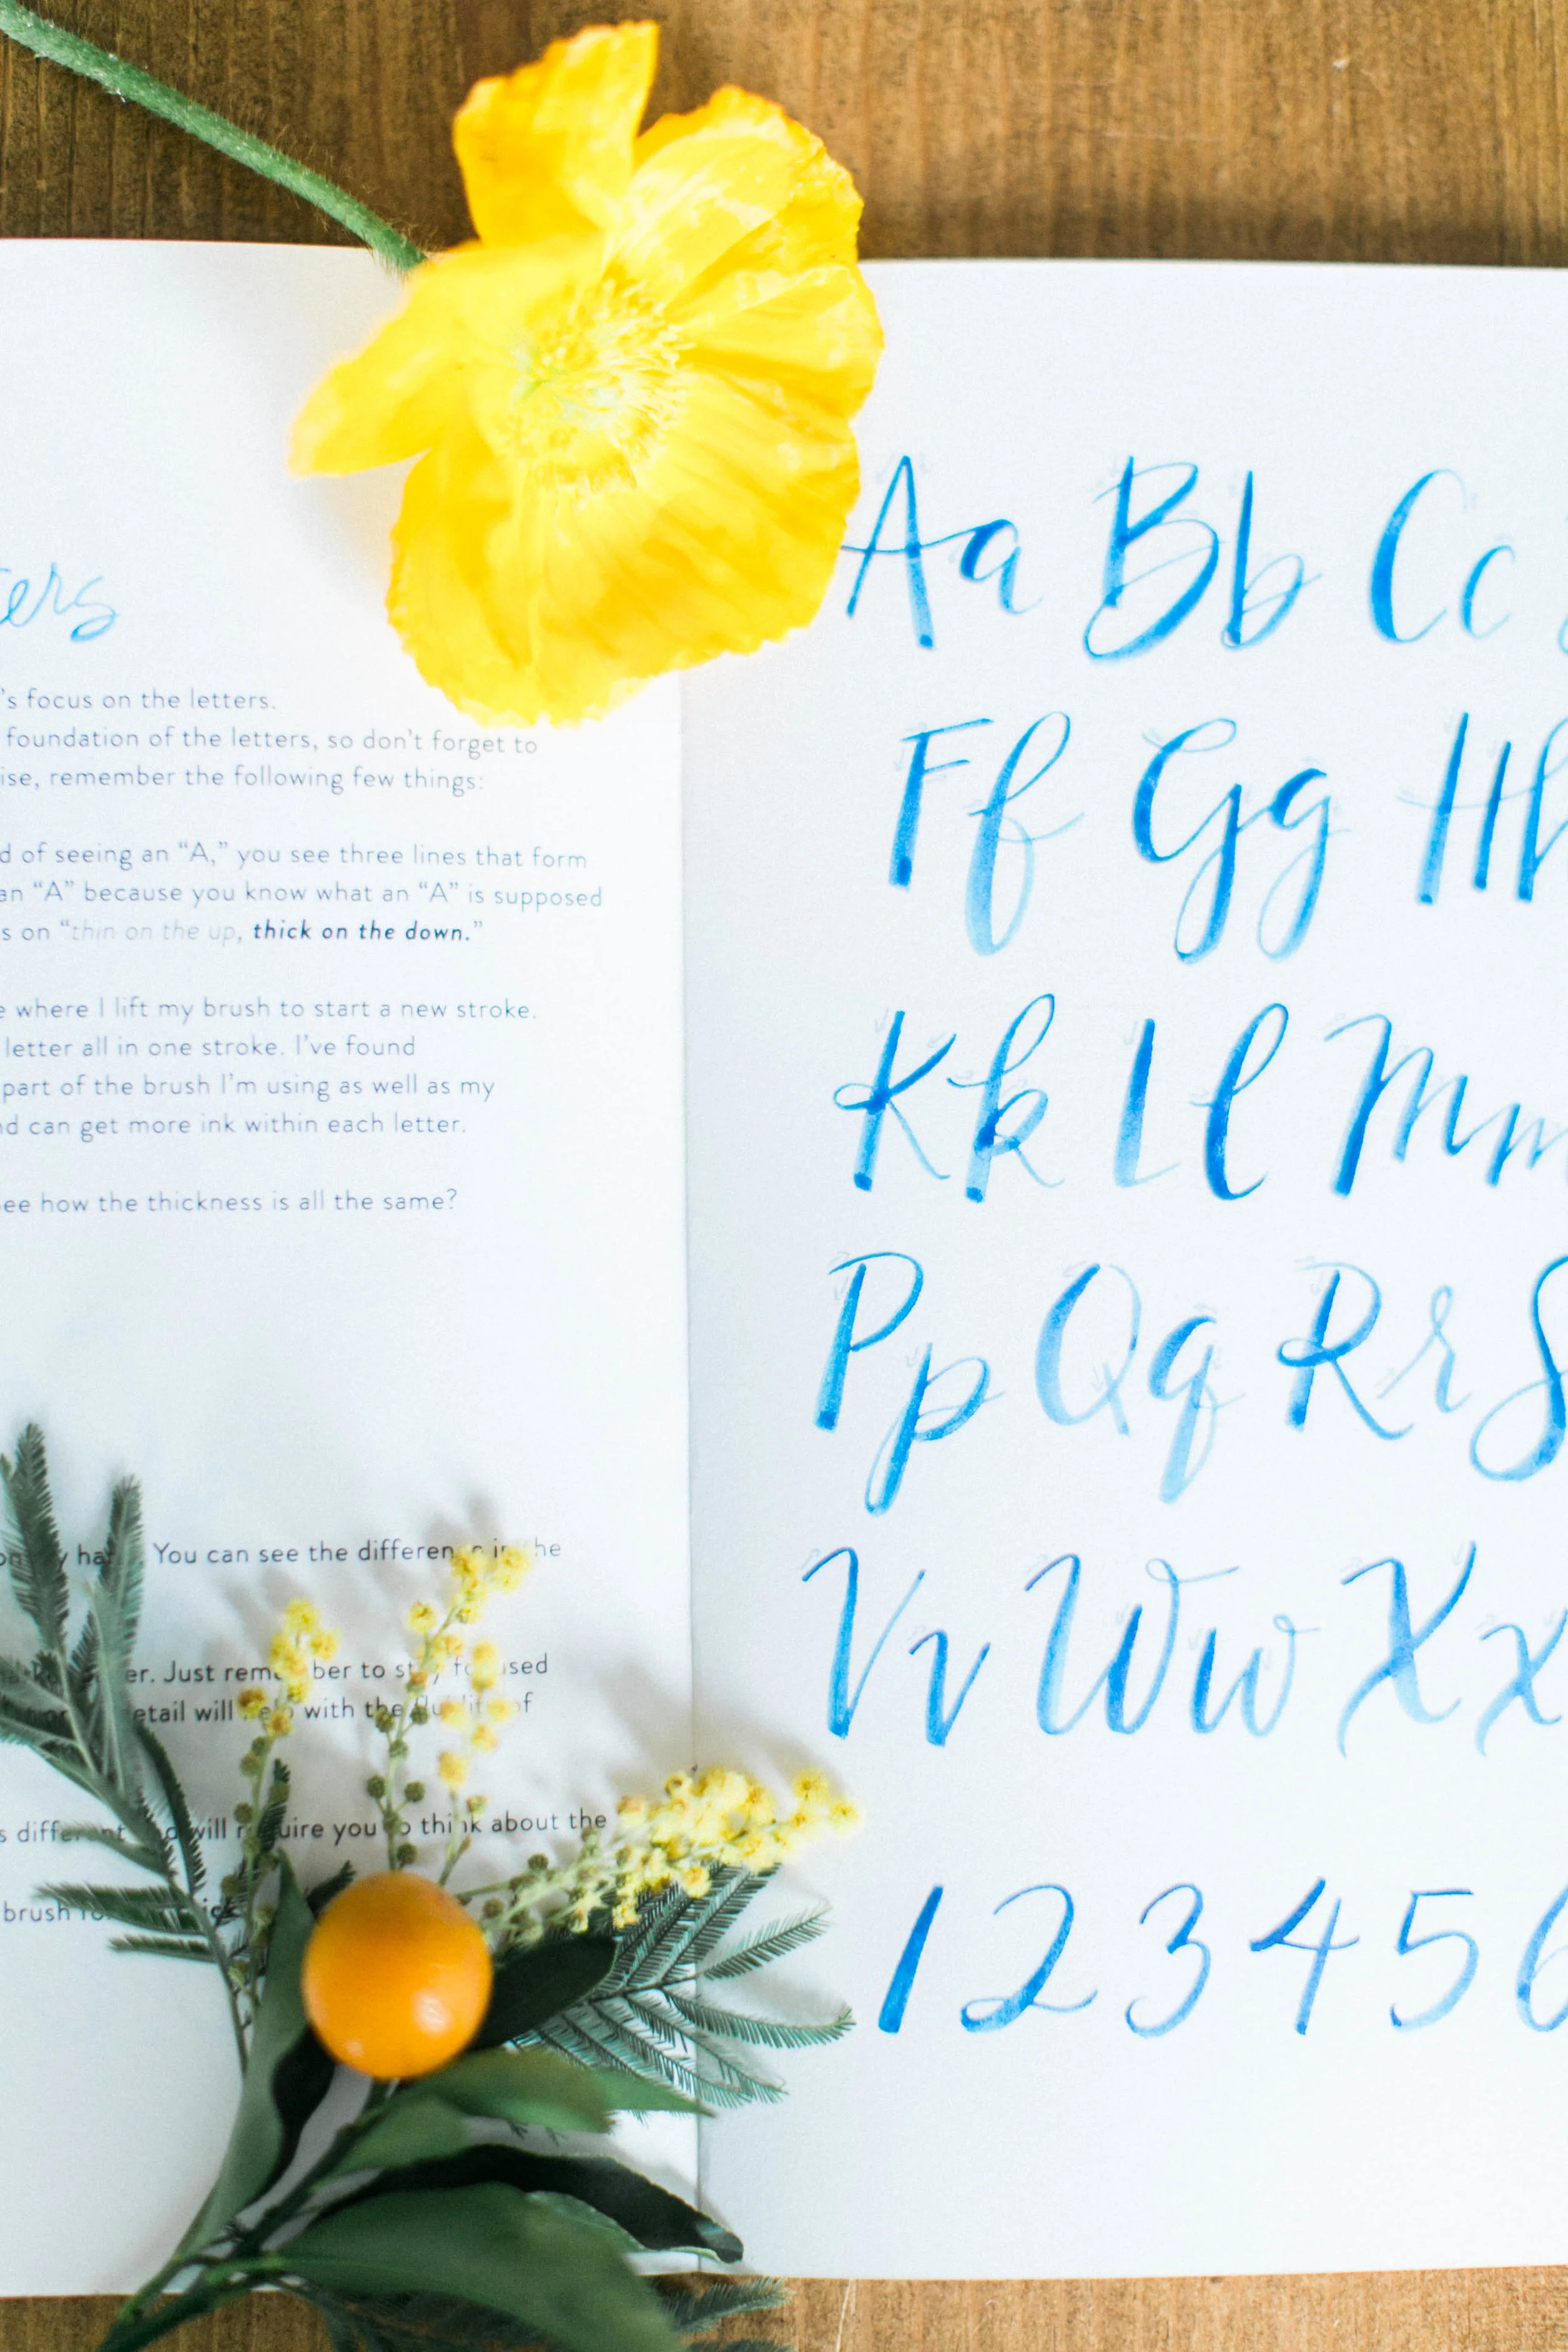 ters
's focus on the letters.
foundation of the letters, so don't forget to
ise, remember the following few things:
d of seeing an “A,” you see three lines that form
an “A” because you know what an “A” is supposed
s on “thin on the up, thick on the down.”
e where I lift my brush to start a new stroke.
letter all in one stroke. I've found
part of the brush I'm using as well as my
nd can get more ink within each letter.
ee how the thickness is all the same?
You can see the difference in the
er. Just remember to stay focused
etail will help with the fluidity of
s different and will require you to think about the
brush
Aa Bb Cc
Ff Gg Hh
Kk Ll Mm
Pp Qq Rr S
Vv Ww Xx
1 2 3 4 5 6